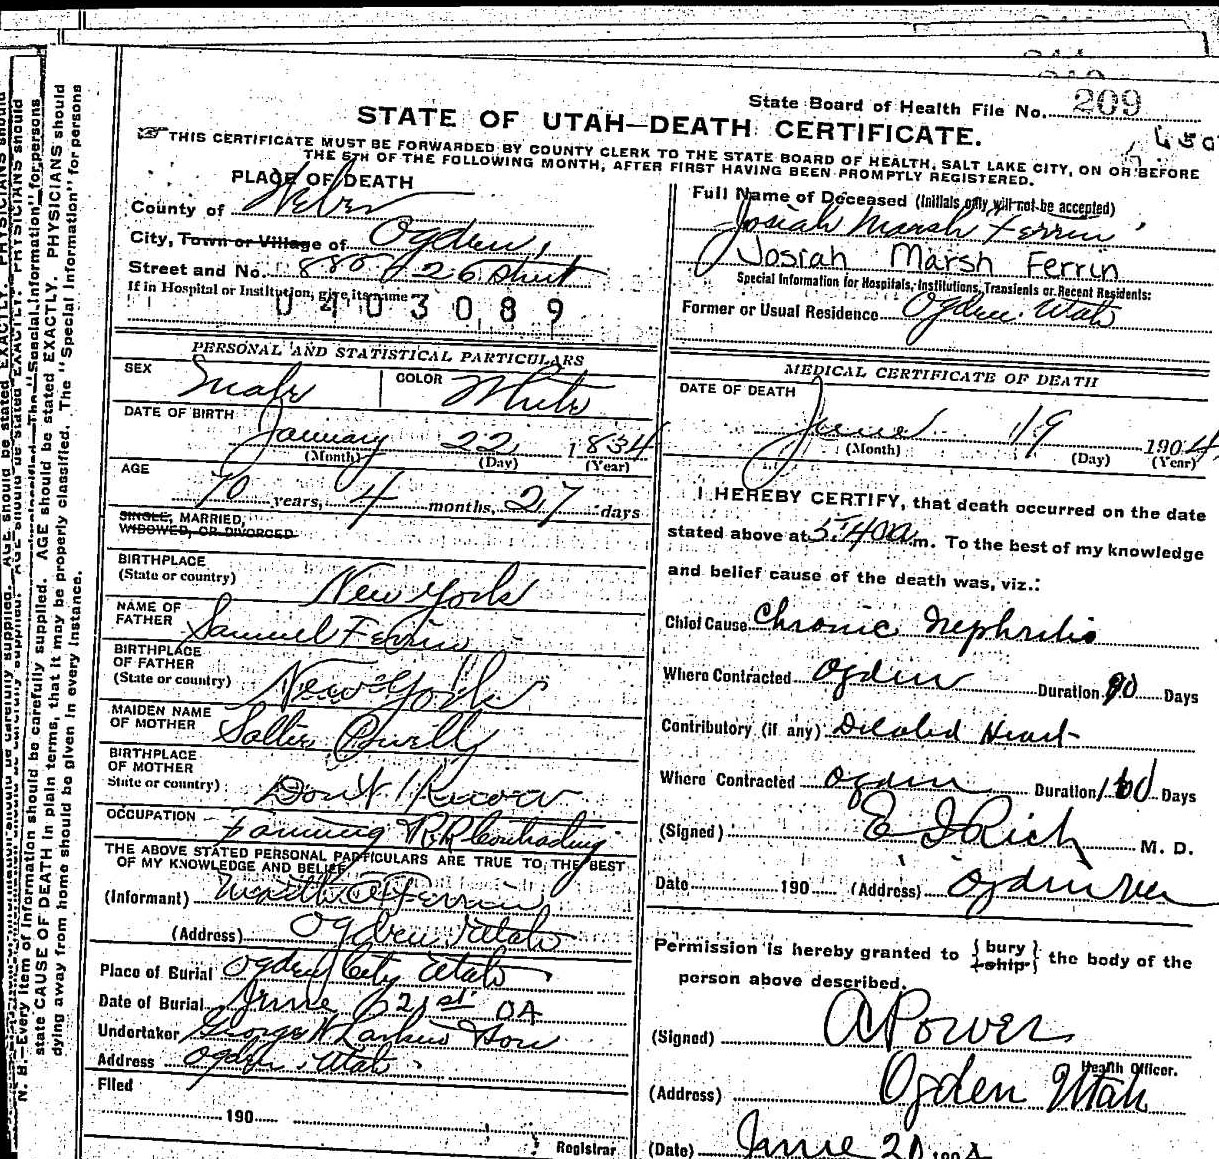 State Board of Health File No. 209
STATE OF UTAH—DEATH CERTIFICATE.
THIS CERTIFICATE MUST BE FORWARDED BY COUNTY CLERK TO THE STATE BOARD OF HEALTH, SALT LAKE CITY, ON OR BEFORE
THE 5TH OF THE FOLLOWING MONTH, AFTER FIRST HAVING BEEN PROMPTLY REGISTERED.
PLACE OF DEATH
County of Weber
City, Town or Village of Ogden,
Street and No. 880 26 Street
If in Hospital or Institution, give its name
0403089
Full Name of Deceased (Initials only will not be accepted)
Josiah Marsh Ferrin
Josiah Marsh Ferrin
Special Information for Hospitals, Institutions, Transients or Recent Residents:
Former or Usual Residence Ogden Utah
PERSONAL AND STATISTICAL PARTICULARS
SEX Male COLOR White
DATE OF BIRTH
January 22 1834
(Month) (Day) (Year)
AGE
70 years, 4 months, 27 days
SINGLE, MARRIED,
WIDOWED, OR DIVORCED
BIRTHPLACE
(State or country) New York
NAME OF
FATHER Samuel Ferrin
BIRTHPLACE
OF FATHER
(State or country) New York
MAIDEN NAME
OF MOTHER
BIRTHPLACE
OF MOTHER
State or country) Don't Know
OCCUPATION Farming R R Contracting
THE ABOVE STATED PERSONAL PARTICULARS ARE TRUE TO THE BEST
OF MY KNOWLEDGE AND BELIEF
(Informant) Ferrin
(Address) Ogden Utah
Place of Burial Ogden City Utah
Date of Burial June 21st 04
Undertaker George W Larkin & Son
Address Ogden Utah
Filed
190
Registrar
MEDICAL CERTIFICATE OF DEATH
DATE OF DEATH
June 19 1904
(Month) (Day) (Year)
I HEREBY CERTIFY, that death occurred on the date
stated above at 5:40 a m. To the best of my knowledge
and belief cause of the death was, viz.:
Chief Cause Chronic Nephritis
Where Contracted Ogden Duration 90 Days
Contributory (if any) Dilated Heart
Where Contracted Ogden Duration Days
(Signed) E I Rich M. D.
Date 190 (Address) Ogden
Permission is hereby granted to { bury
ship } the body of the
person above described.
(Signed) A Power
Health Officer.
(Address) Ogden Utah
(Date) June 20 1904
N. B.—Every item of information should be carefully supplied. AGE should be stated EXACTLY. PHYSICIANS should
state CAUSE OF DEATH in plain terms, that it may be properly classified. The "Special Information" for persons
dying away from home should be given in every instance.